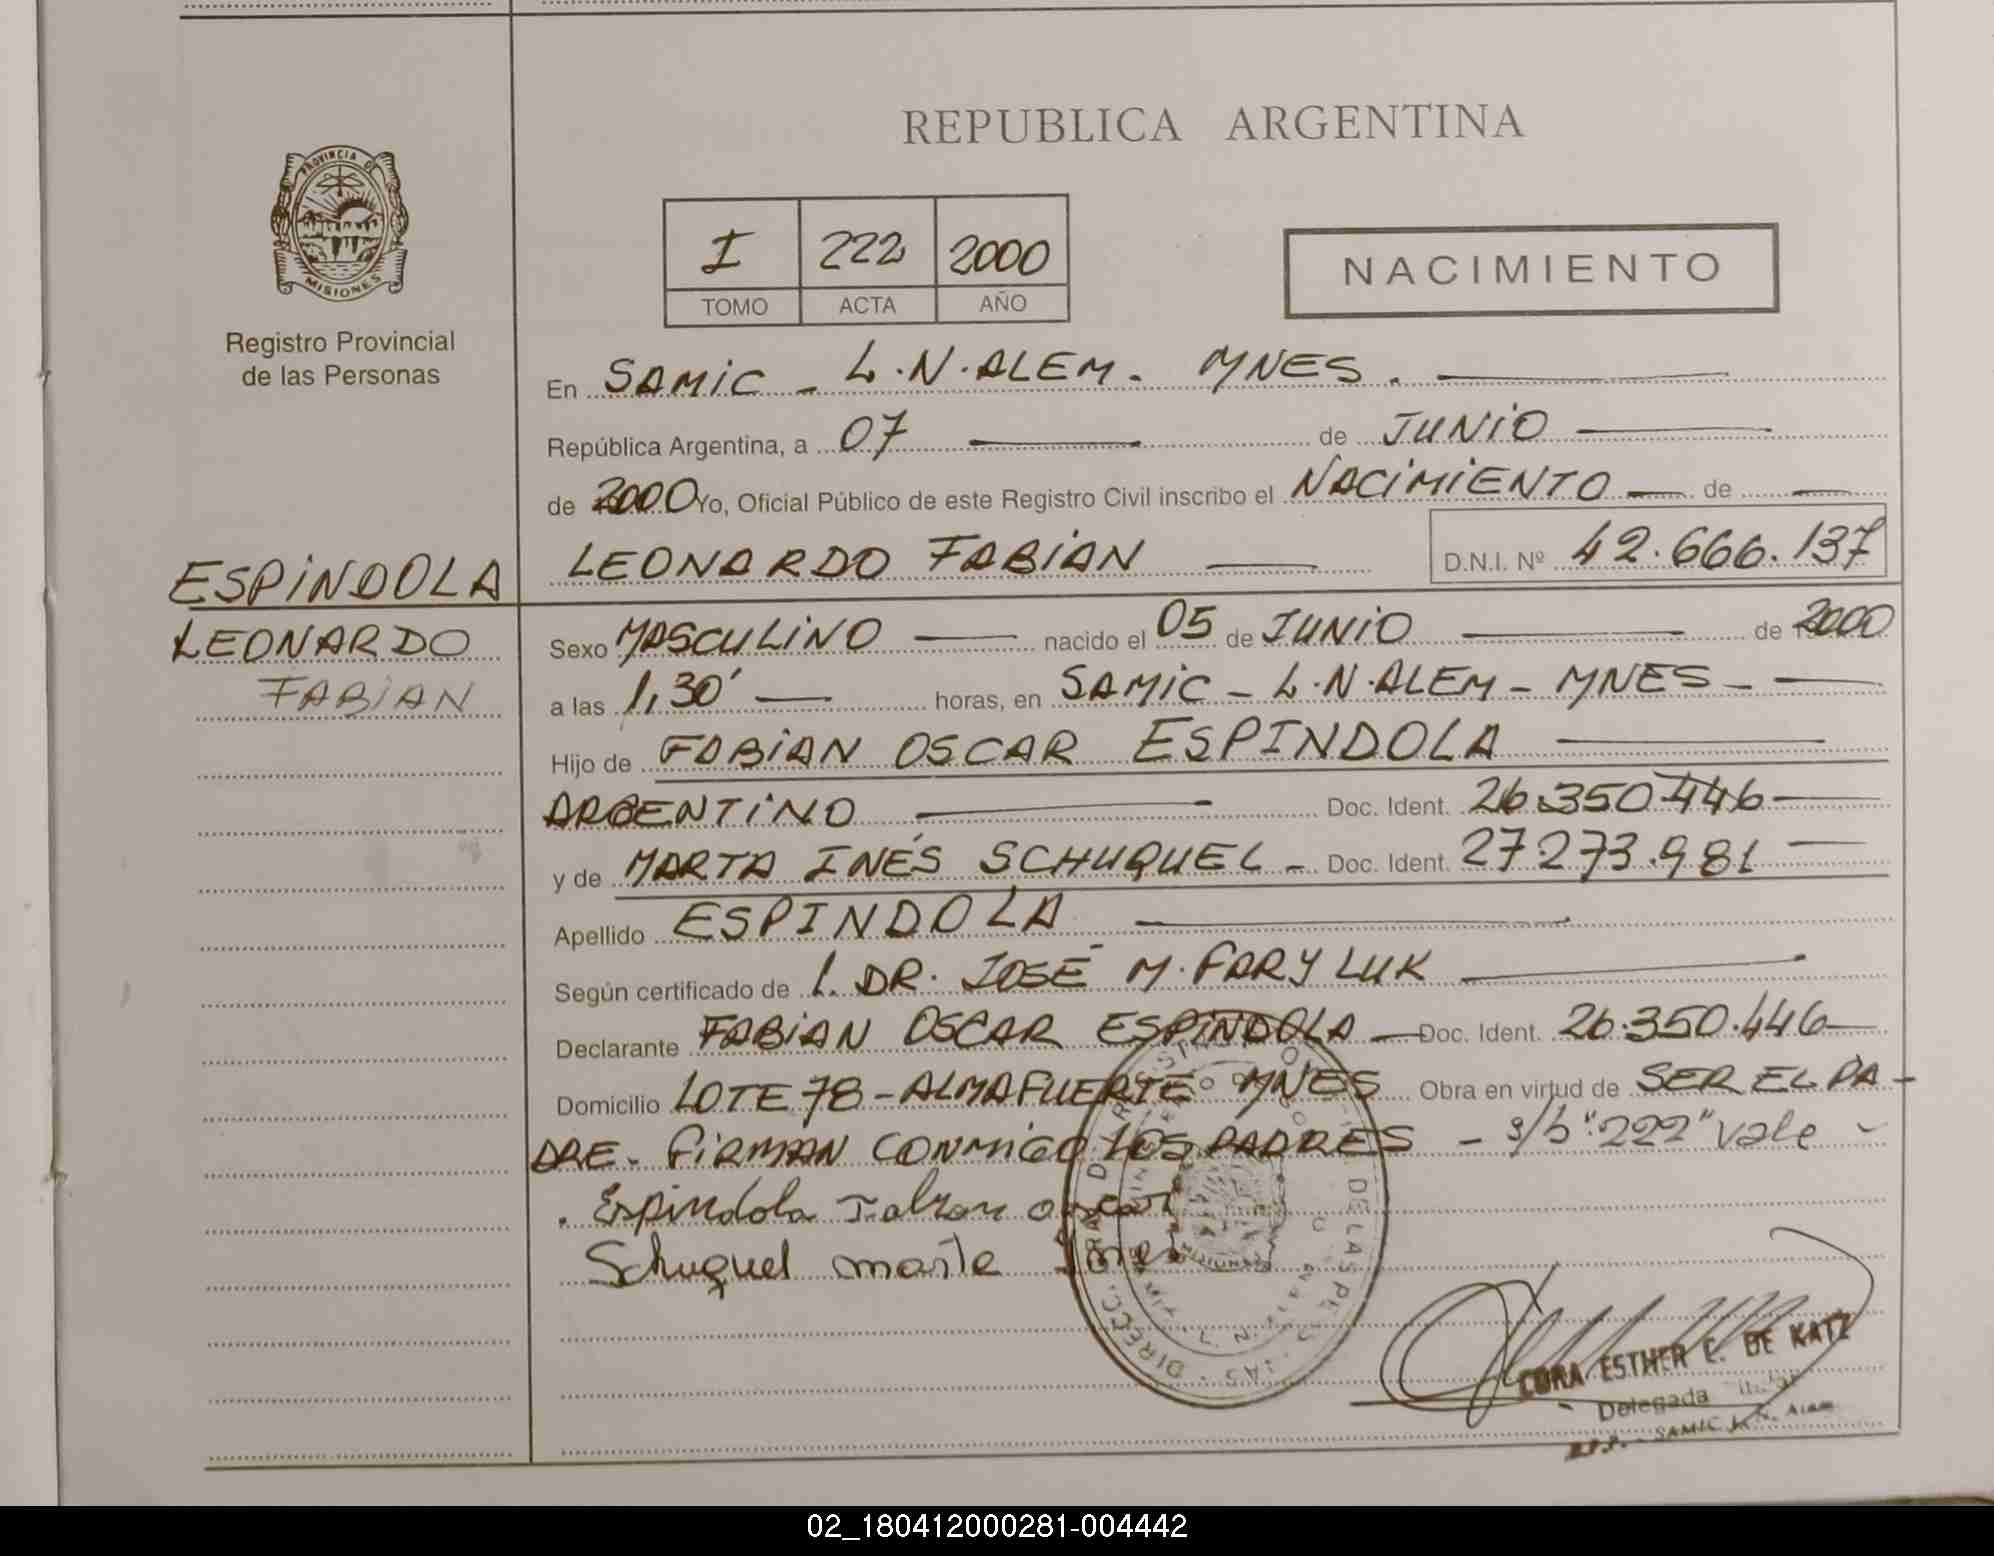 REPUBLICA ARGENTINA
PROVINCIA DE
MISIONES
Registro Provincial
de las Personas
I 222 2000
TOMO ACTA AÑO
NACIMIENTO
En SAMIC - L.N.ALEM. MNES.
República Argentina, a 07 de JUNIO
de 2000 Yo, Oficial Público de este Registro Civil inscribo el NACIMIENTO de
ESPINDOLA
LEONARDO
FABIAN
LEONARDO FABIAN D.N.I. Nº 42.666.137
Sexo MASCULINO nacido el 05 de JUNIO de 2000
a las 1,30' horas, en SAMIC - L.N.ALEM - MNES -
Hijo de FABIAN OSCAR ESPINDOLA
ARGENTINO Doc. Ident. 26.350.446
y de MARTA INÉS SCHUQUEL - Doc. Ident. 27.273.981
Apellido ESPINDOLA
Según certificado de 1. DR. JOSÉ M. FARYLUK
Declarante FABIAN OSCAR ESPINDOLA - Doc. Ident. 26.350.446
Domicilio LOTE 78 - ALMAFUERTE MNES Obra en virtud de SER EL PA-
DRE. FIRMAN CONMIGO LOS PADRES - s/b "222" vale -
Espindola Fabian Oscar
Schuquel marta Ines
CORA ESTHER E. DE KATZ
Delegada
R.P.P. - SAMIC L.N. Alem
02_180412000281-004442